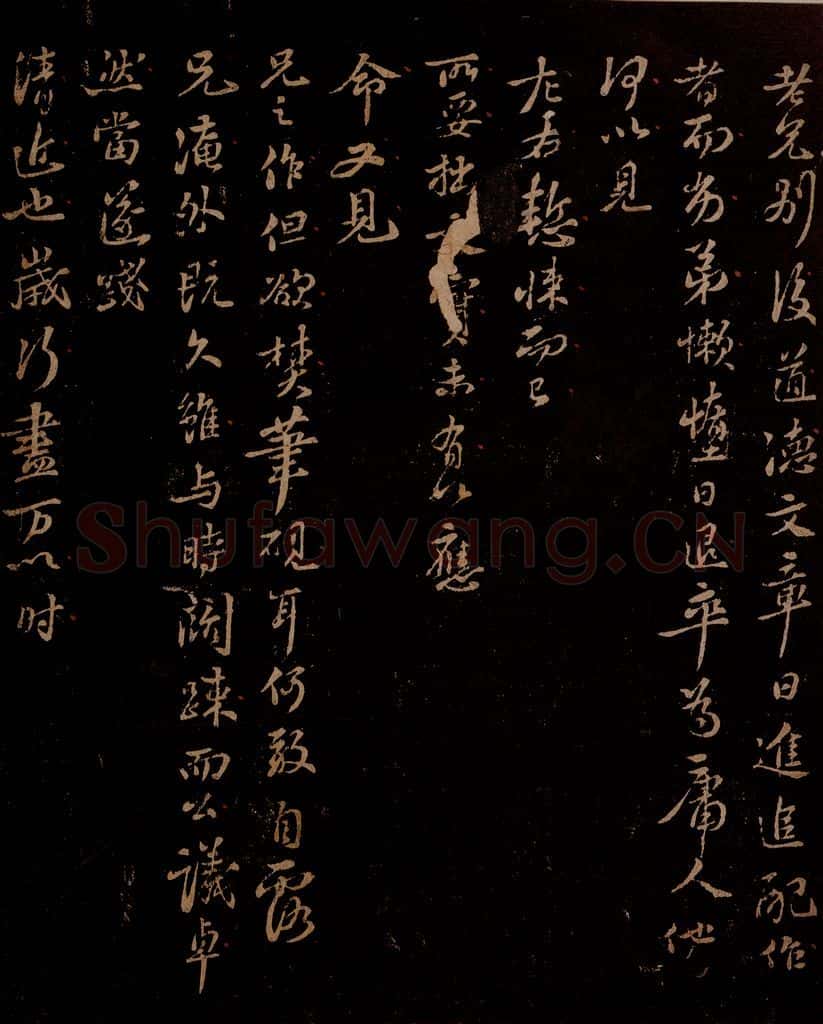 老兄別後道德文章日進追配作
者而劣弟懶惰日退卒為庸人他
日何以見
左右慙悚而已
所要拙文實未有以應
命又見
兄之作但欲焚筆硯耳何敢自露
兄淹外既久雖与時闊疎而公議卓
然當遂踐
清近也歲行盡万以时
Shufawang.CN